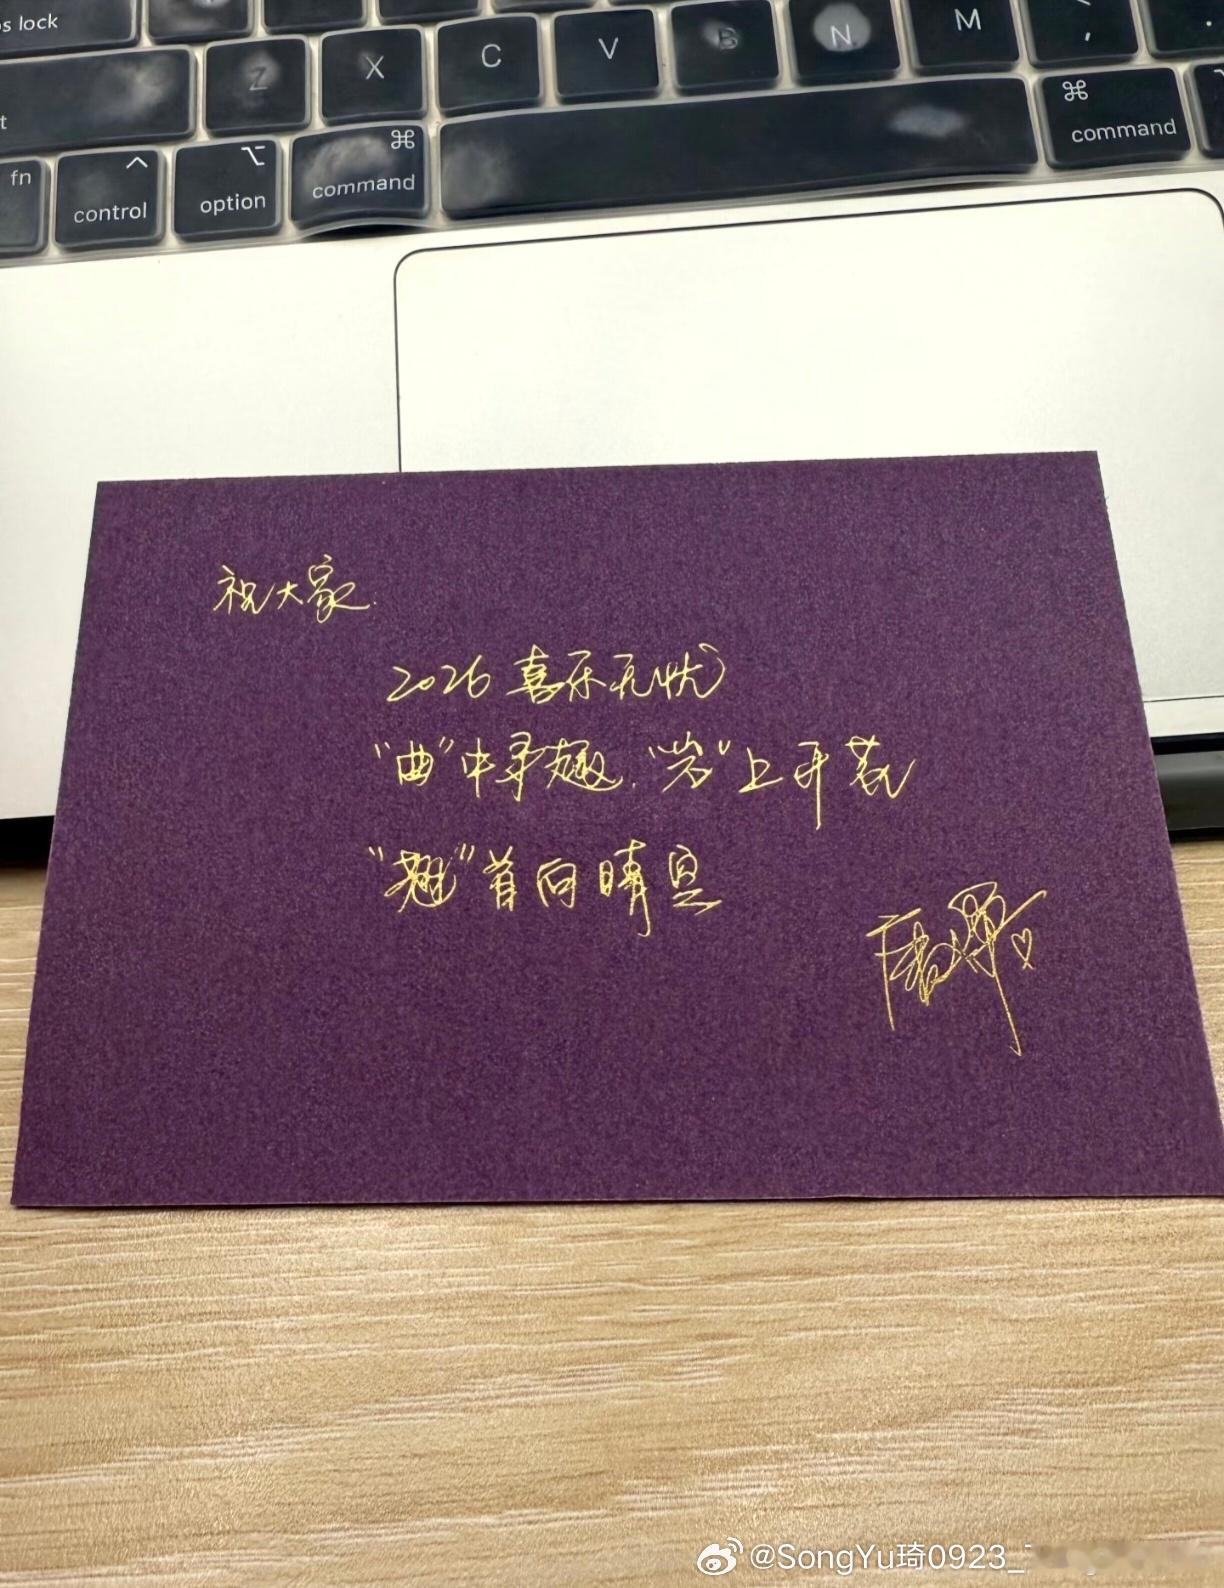 s lock
Z X C V B N M ,
t
fn
^ control
⌥ option
⌘ command
⌘ command
祝大家
2026 喜乐无忧
“曲”中寻趣，“岩”上开花
“翘”首向晴昼
唐嫣♡
@SongYu琦0923_